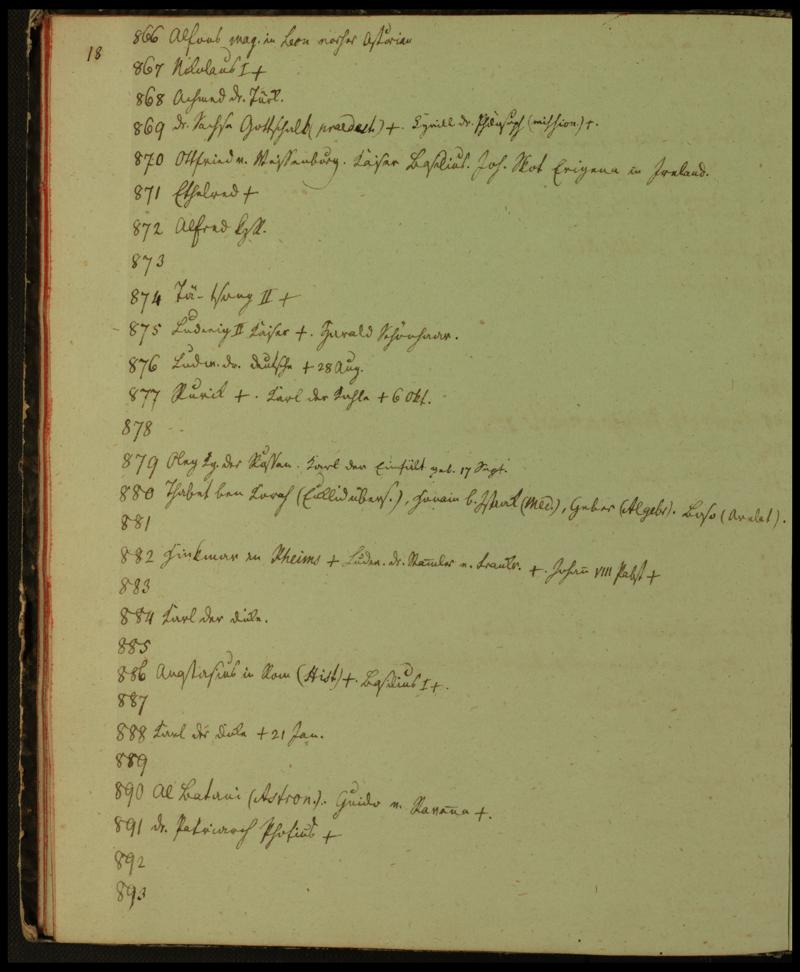 18
866 Alfons mag. in Leon vorher Asturien
867 Nikolaus I +
868 Achmed dr. Türk.
869 dr. Sachse Gottschalk (praedest.) +. Kyrill dr. Philosoph (mission.) +.
870 Ottfried v. Weissenburg. Kaiser Basilius. Joh. Skot Erigena in Ireland.
871 Ethelred +
872 Alfred
873
874 II +
875 Ludewig II Kaiser +. Harald Schönhaar.
876 Ludw. dr. deutsche + 28 Aug.
877 Rurik +. Karl der Kahle + 6 Okt.
878
879 Oleg Kg. der Russen. Karl der Einfält geb. 17 Sept.
880 Thabet ben Korah (Euklid übers.), Honain b. Ishak (Med.), Geber (Algebr). Baso (Arelat).
881
882 Hinkmar in Rheims + Ludw. dr. Stammler v. Frankr. +. Johann VIII Pabst +
883
884 Karl der dicke.
885
886 Anastasius in Rom (Hist) +. Basilius I +.
887
888 Karl der dicke + 21 Jan.
889
890 Al Batani (Astron.). Guido v. Ravenna +.
891 dr. Patriarch Photius +
892
893